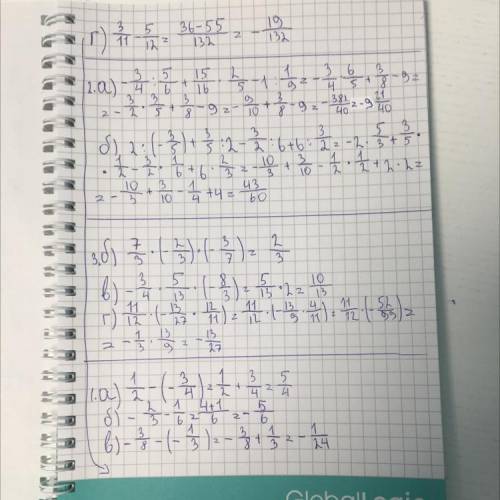 г) 3/11 - 5/12 = 36-55/132 = - 19/132
2.а) - 3/4 : 5/6 + 15/16 · 2/5 - 1 : 1/9 = - 3/4 · 6/5 + 3/8 - 9 =
= - 3/2 · 3/5 + 3/8 - 9 = - 9/10 + 3/8 - 9 = - 381/40 = -9 21/40
б) 2 : (- 3/5) + 3/5 : 2 - 3/2 : 6 + 6 : 3/2 = -2 · 5/3 + 3/5 ·
· 1/2 - 3/2 · 1/6 + 6 · 2/3 = - 10/3 + 3/10 - 1/2 · 1/2 + 2 · 2 =
= - 10/3 + 3/10 - 1/4 + 4 = 43/60
3.б) 7/3 · (- 2/3) · (- 3/7) = 2/3
в) - 3/4 · 5/13 · (- 8/3) = 5/13 · 2 = 10/13
г) 11/12 · (- 13/27 · 12/11) = 11/12 · (- 13/9 · 4/11) = 11/12 · (- 52/99) =
= - 1/3 · 13/9 = - 13/27
1.а) 1/2 - (- 3/4) = 1/2 + 3/4 = 5/4
б) - 2/3 - 1/6 = - 4+1/6 = - 5/6
в) - 3/8 - (- 1/3) = - 3/8 + 1/3 = - 1/24
GlobalLogic